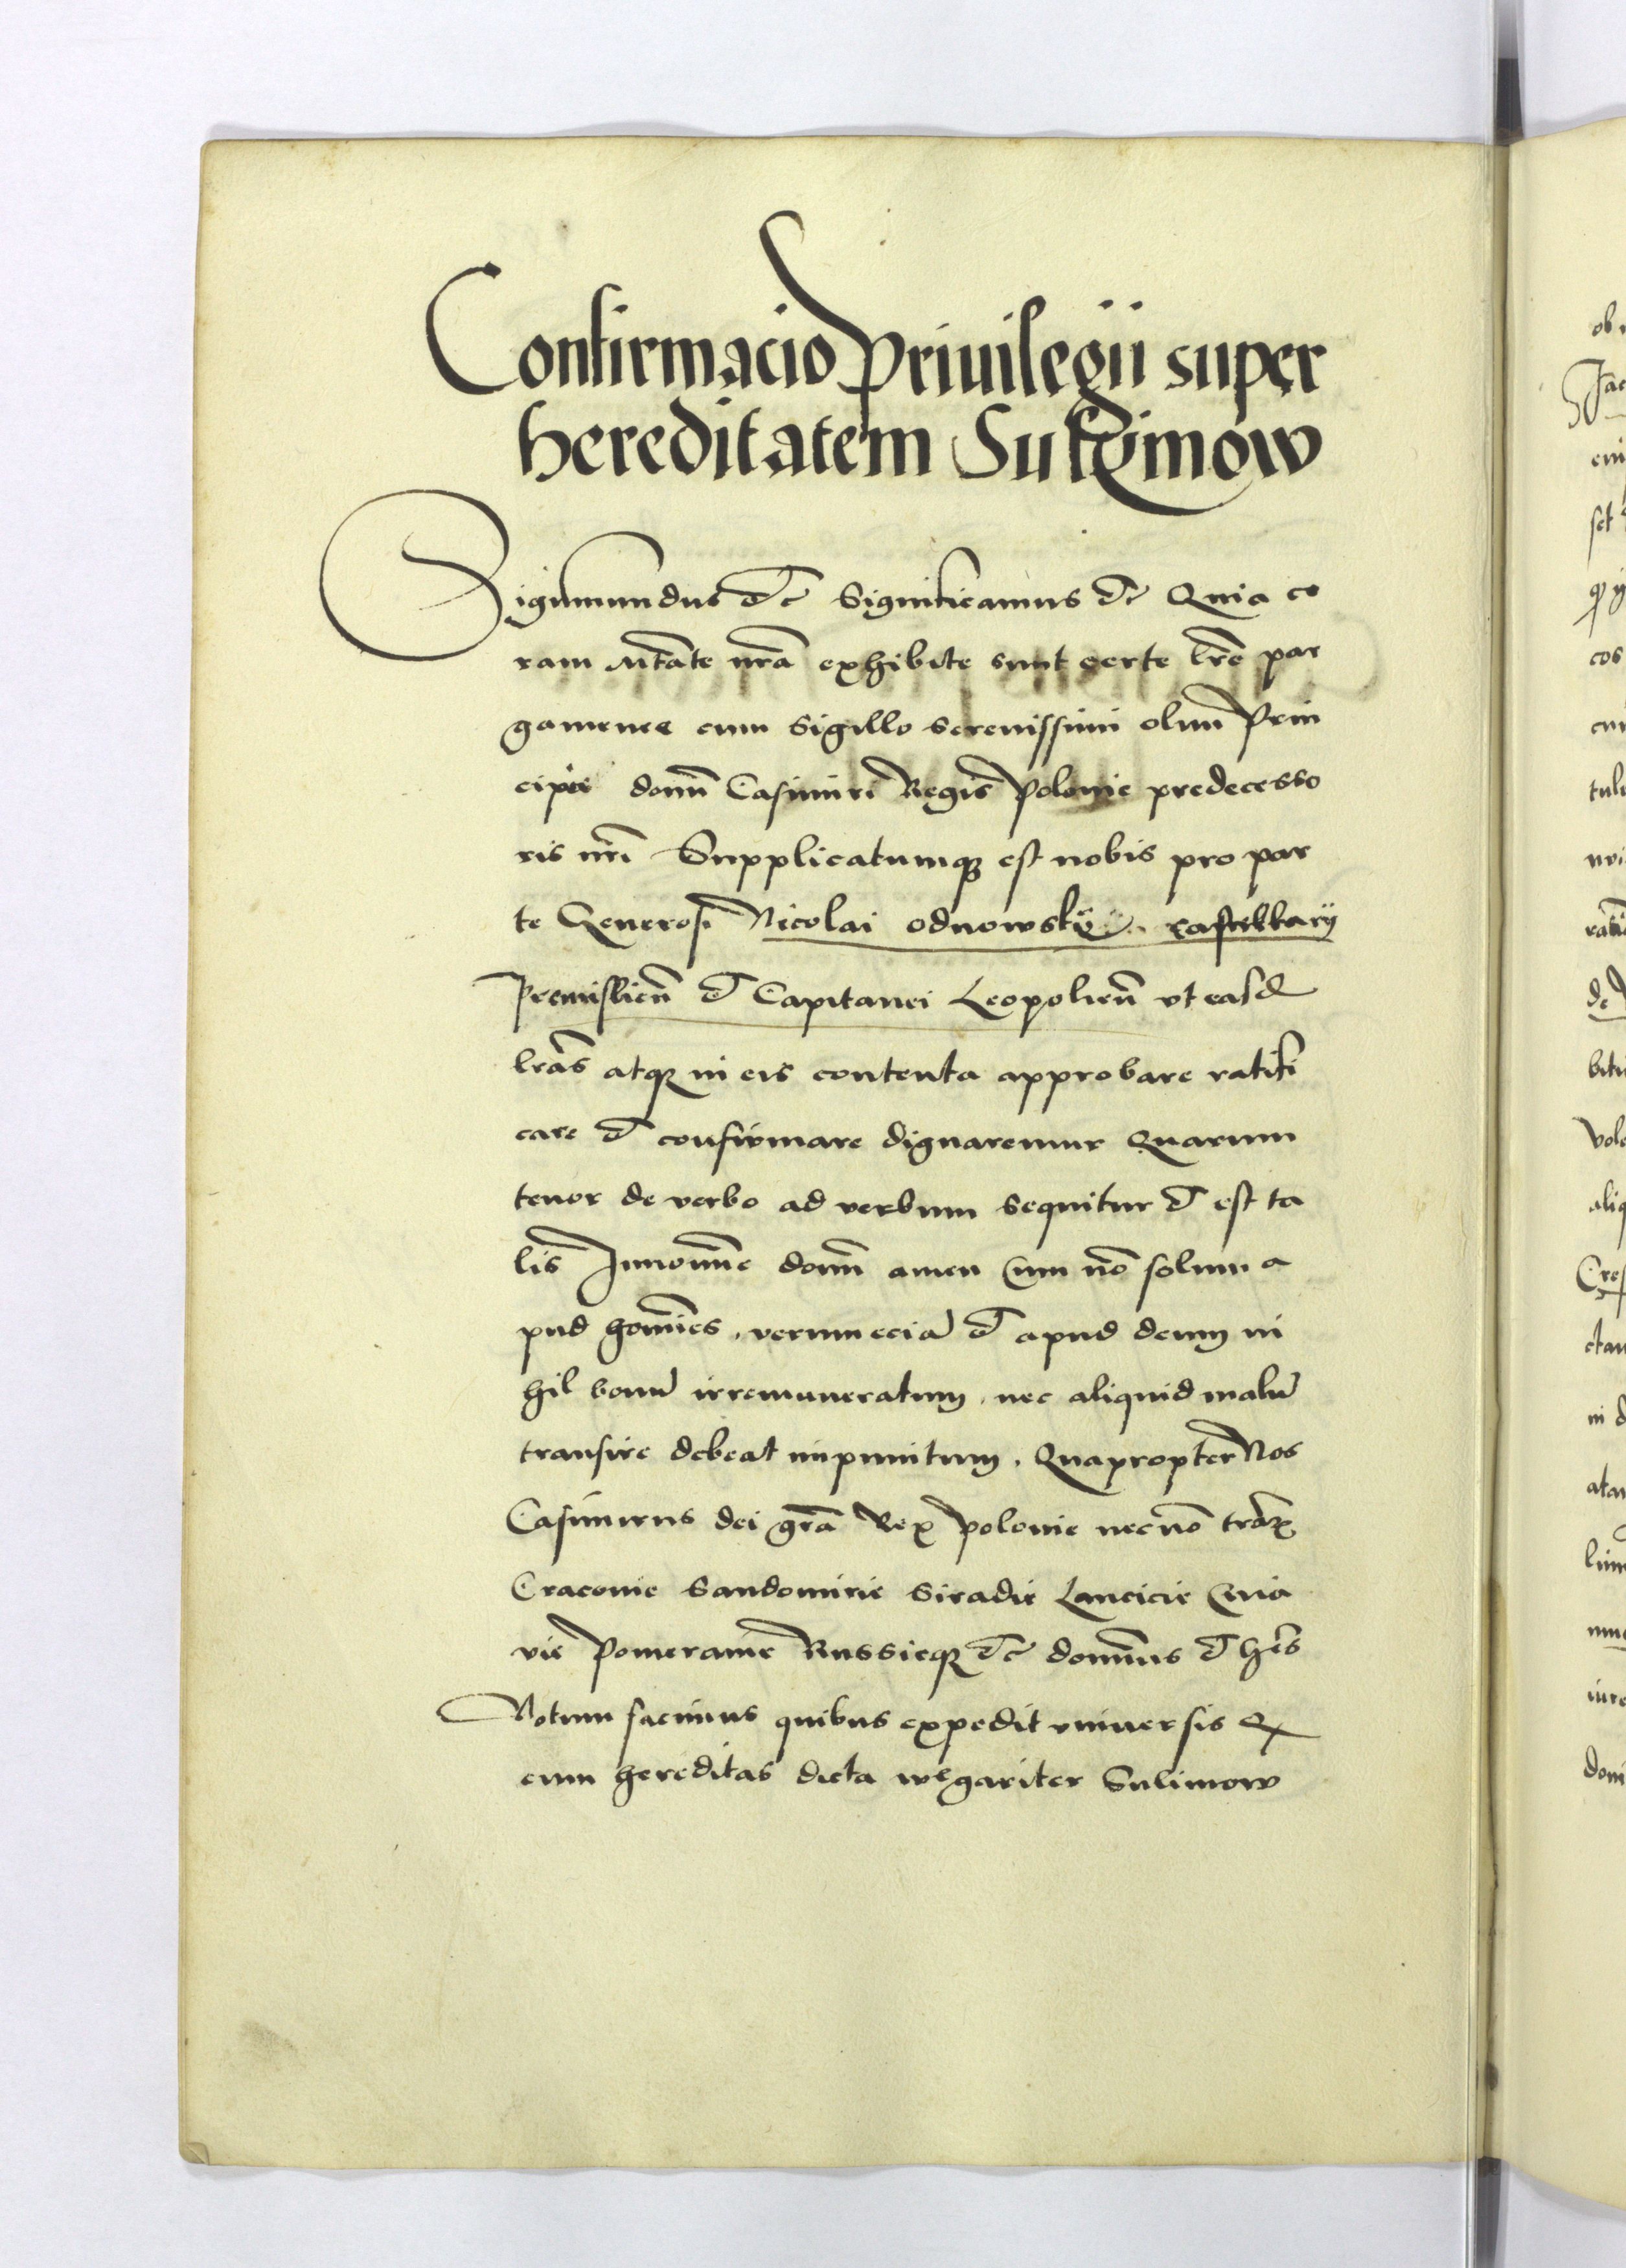 Confirmacio Privilegii super
hereditatem Sulimow
Sigismundus etc Significamus etc Quia co
ram Mtate nra exhibite sunt certe lre par
gamenee cum Sigillo serenissimi olim Prin
cipis domi Casimiri Regis Polonie predecesso
ris nri Supplicatumqz est nobis pro par
te Generosi Nicolai odnowsky castellany
Premislien et Capitanei Leopolien vt easd
lras atqz in eis contenta approbare ratifi
care et confirmare dignaremur Quarum
tenor de verbo ad verbum sequitur et est ta
lis In nomine domi amen Cum no solum a
pud homines verum ecia et apud deum ni
hil bonu irremuneratum nec aliquid malu
transire debeat impunitum. Quapropter Nos
Casimirus dei gra Rex Polonie necno trarz
Cracouie Sandomirie Siradie Lancicie Cuia
vie Pomeranie Russieqz etc dominus et heres
Notum facimus quibus expedit vniuersis Q
cum hereditas dicta wlgariter Sulimow
ob
Jac
set
cos
de
bitu
vole
aliq
Cres
ctan
in d
atan
iure
domi